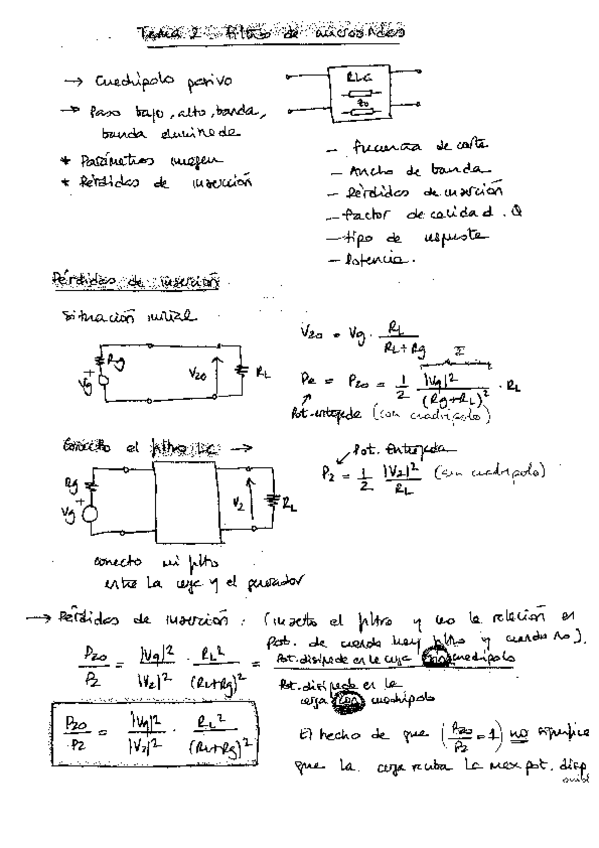 Tema 2 Filtros de microondas
→ Cuadripolo pasivo
RLC
Z0
→ Paso bajo, alto, banda,
banda eliminada
* Parámetros imagen
* Pérdidas de inserción
- frecuencia de corte
- Ancho de banda
- Pérdidas de inserción
- factor de calidad. Q
- tipo de respuesta
- Potencia.
Pérdidas de inserción
Situación inicial
Rg
Vg
+
V20
RL
V20 = Vg · RL / (RL + Rg)
I
Pe = P20 = 1/2 |Vg|² / (Rg+RL)² · RL
Pot. entregada (con cuadripolo)
Conecto el filtro LC →
Rg
Vg
+
V2
RL
Pot. Entregada
P2 = 1/2 |V2|² / RL (sin cuadripolo)
conecto mi filtro
entre la carga y el generador
→ Pérdidas de inserción: (inserto el filtro y veo la relación en
Pot. de cuando hay filtro y cuando no).
P20/P2 = |Vg|²/|V2|² · RL²/(RL+Rg)² = Pot. disipada en la carga sin cuadripolo
Pot. disipada en la
carga con cuadripolo
P20/P2 = |Vg|²/|V2|² · RL²/(RL+Rg)²
El hecho de que (P20/P2 = 1) no significa
que la carga reciba la max pot. disp